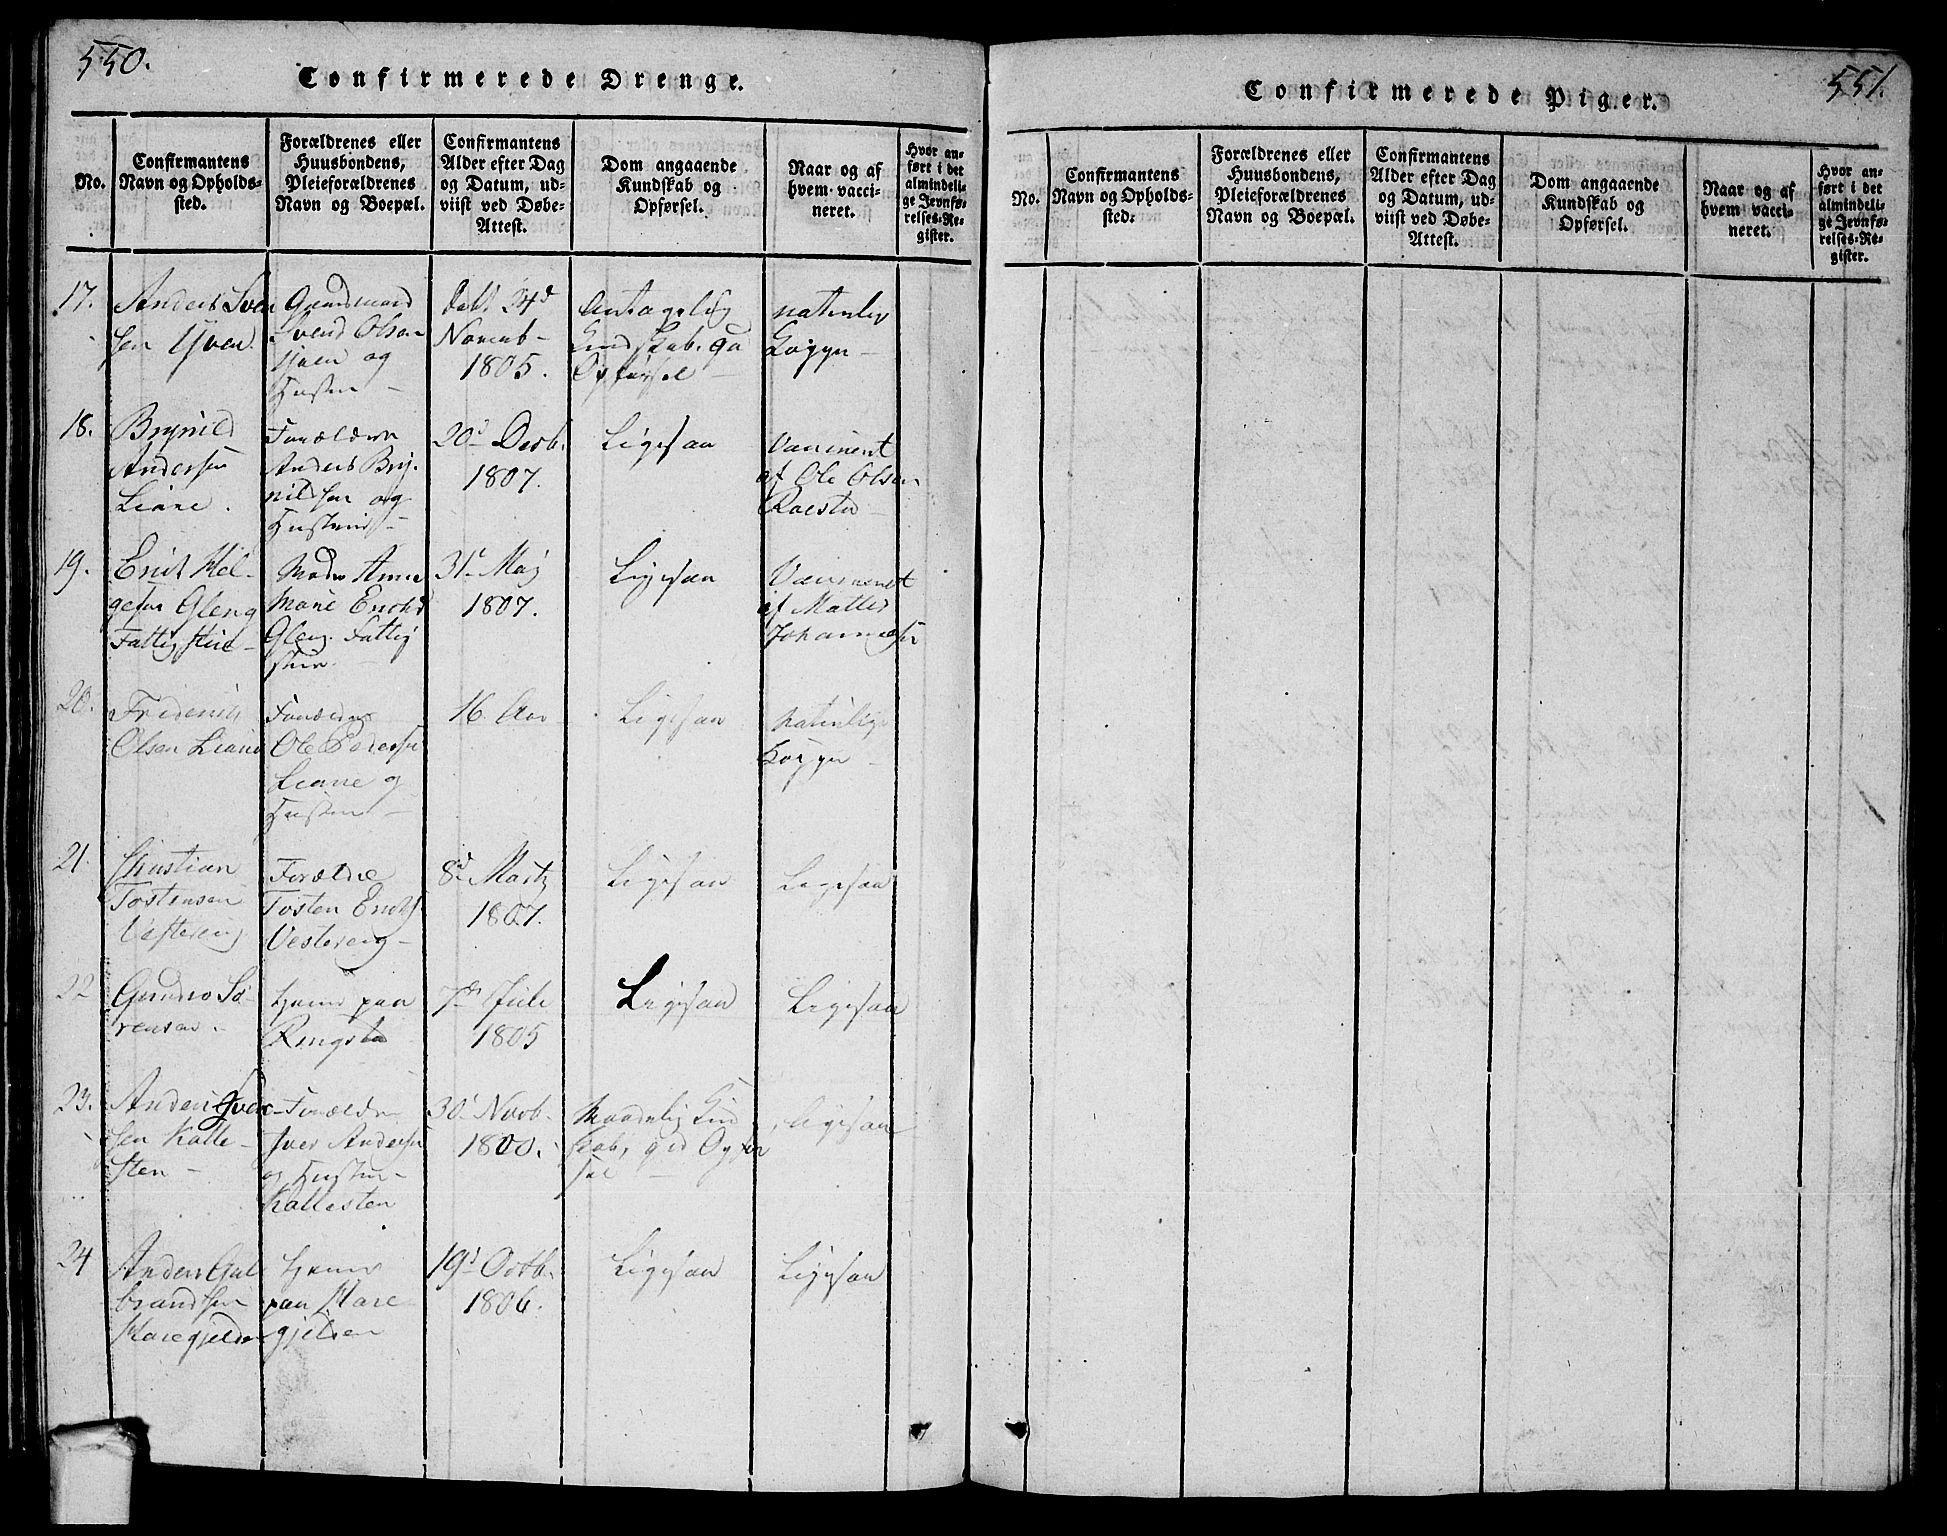 550.
Confirmerede Drenge.
No.
Confirmantens
Navn og Opholds-
sted.
Forældrenes eller
Huusbondens,
Pleieforældrenes
Navn og Boepæl.
Confirmantens
Alder efter Dag
og Datum, ud-
viist ved Døbe-
Attest.
Dom angaaende
Kundskab og
Opførsel.
Naar og af
hvem vacci-
neret.
Hvor an-
ført i det
almindeli-
ge Jevnfø-
relses-Re-
gister.
17.
Anders Sven
sen
Svend Olsen
og
Hustru
24d
Novemb-
1805.
Antagelig
Kundskab. go
Opførsel
naturlig
Kopper
18.
Brynild
Andersen
Liane.
Forældrene
Anders Bry-
nildsen og
Hustrue
20d Decb.
1807.
Ligesaa
Vaccineret
af Ole Olsen
19.
Mel-
gesen Gleng
Fattig
Moder Anne
Marie
Gleng. Fattig
31d Maj
1807.
Ligesaa
Vaccineret
af
Johannesen
20.
Friderich
Olsen Liane
Forældre
Ole Pedersen
Liane og
Hustru
16 Aar
Ligesaa
naturlige
Kopper
21.
Christian
Tostensen
Vestereng
Forældre
Tosten
Vestereng
8d Martz
1807.
Ligesaa
Ligesaa
22
Sö-
rensen.
paa
Ringsta
7d Juli
1805
Ligesaa
Ligesaa
23.
Anders Iver
sen Kalle-
sten
Forældre
Iver Andersen
og Hustru
Kallesten
30d Novb
1800.
Maadelig Kund
skab, god Opfør
sel
Ligesaa
24
Anders Gul
brandsen
Haregjelden
paa Hare
gjelden
19d Octb.
1806.
Ligesaa
Ligesaa
551.
Confirmerede Piger.
No.
Confirmantens
Navn og Opholds-
sted.
Forældrenes eller
Huusbondens,
Pleieforældrenes
Navn og Boepæl.
Confirmantens
Alder efter Dag
og Datum, ud-
viist ved Døbe-
Attest.
Dom angaaende
Kundskab og
Opførsel.
Naar og af
hvem vacci-
neret.
Hvor an-
ført i det
almindeli-
ge Jevnfø-
relses-Re-
gister.